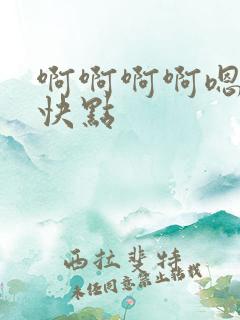 啊啊啊啊嗯
快點
西拉斐特
未任同意禁止轉載